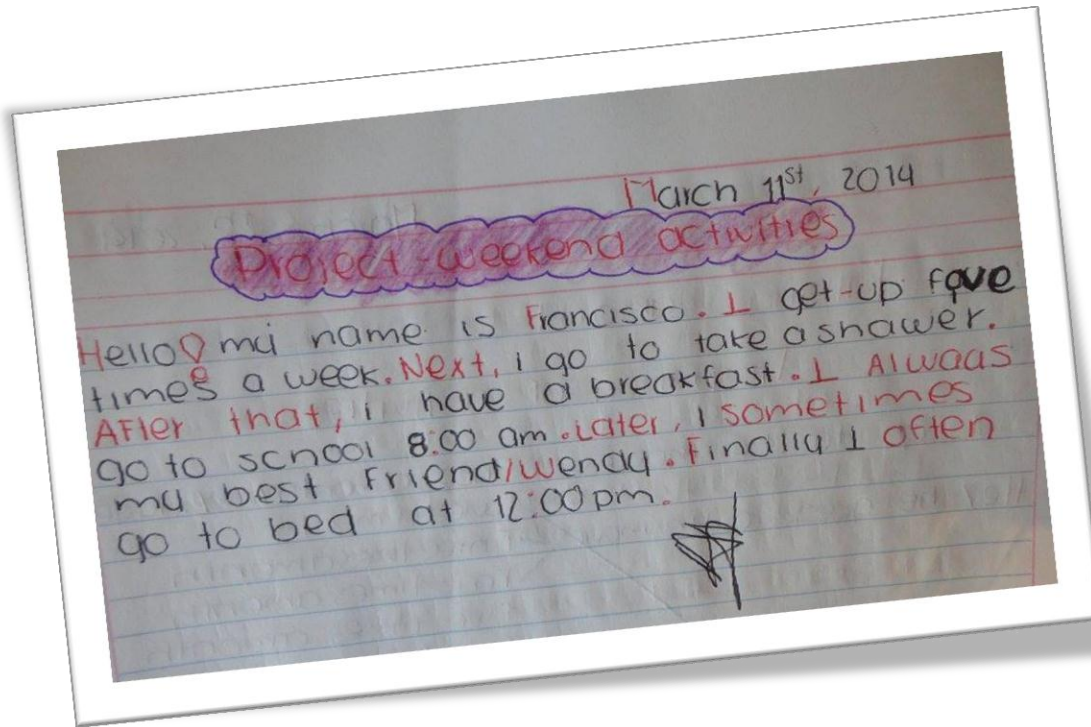 March 11st, 2014
Project-weekend activities
Hello! my name is Francisco. I get-up fove
times a week. Next, i go to take a shawer.
AFter that, i have a breakfast. I Alwaas
go to school 8:00 am. Later, I sometimes
my best Friend/wendy. Finally I often
go to bed at 12:00pm.